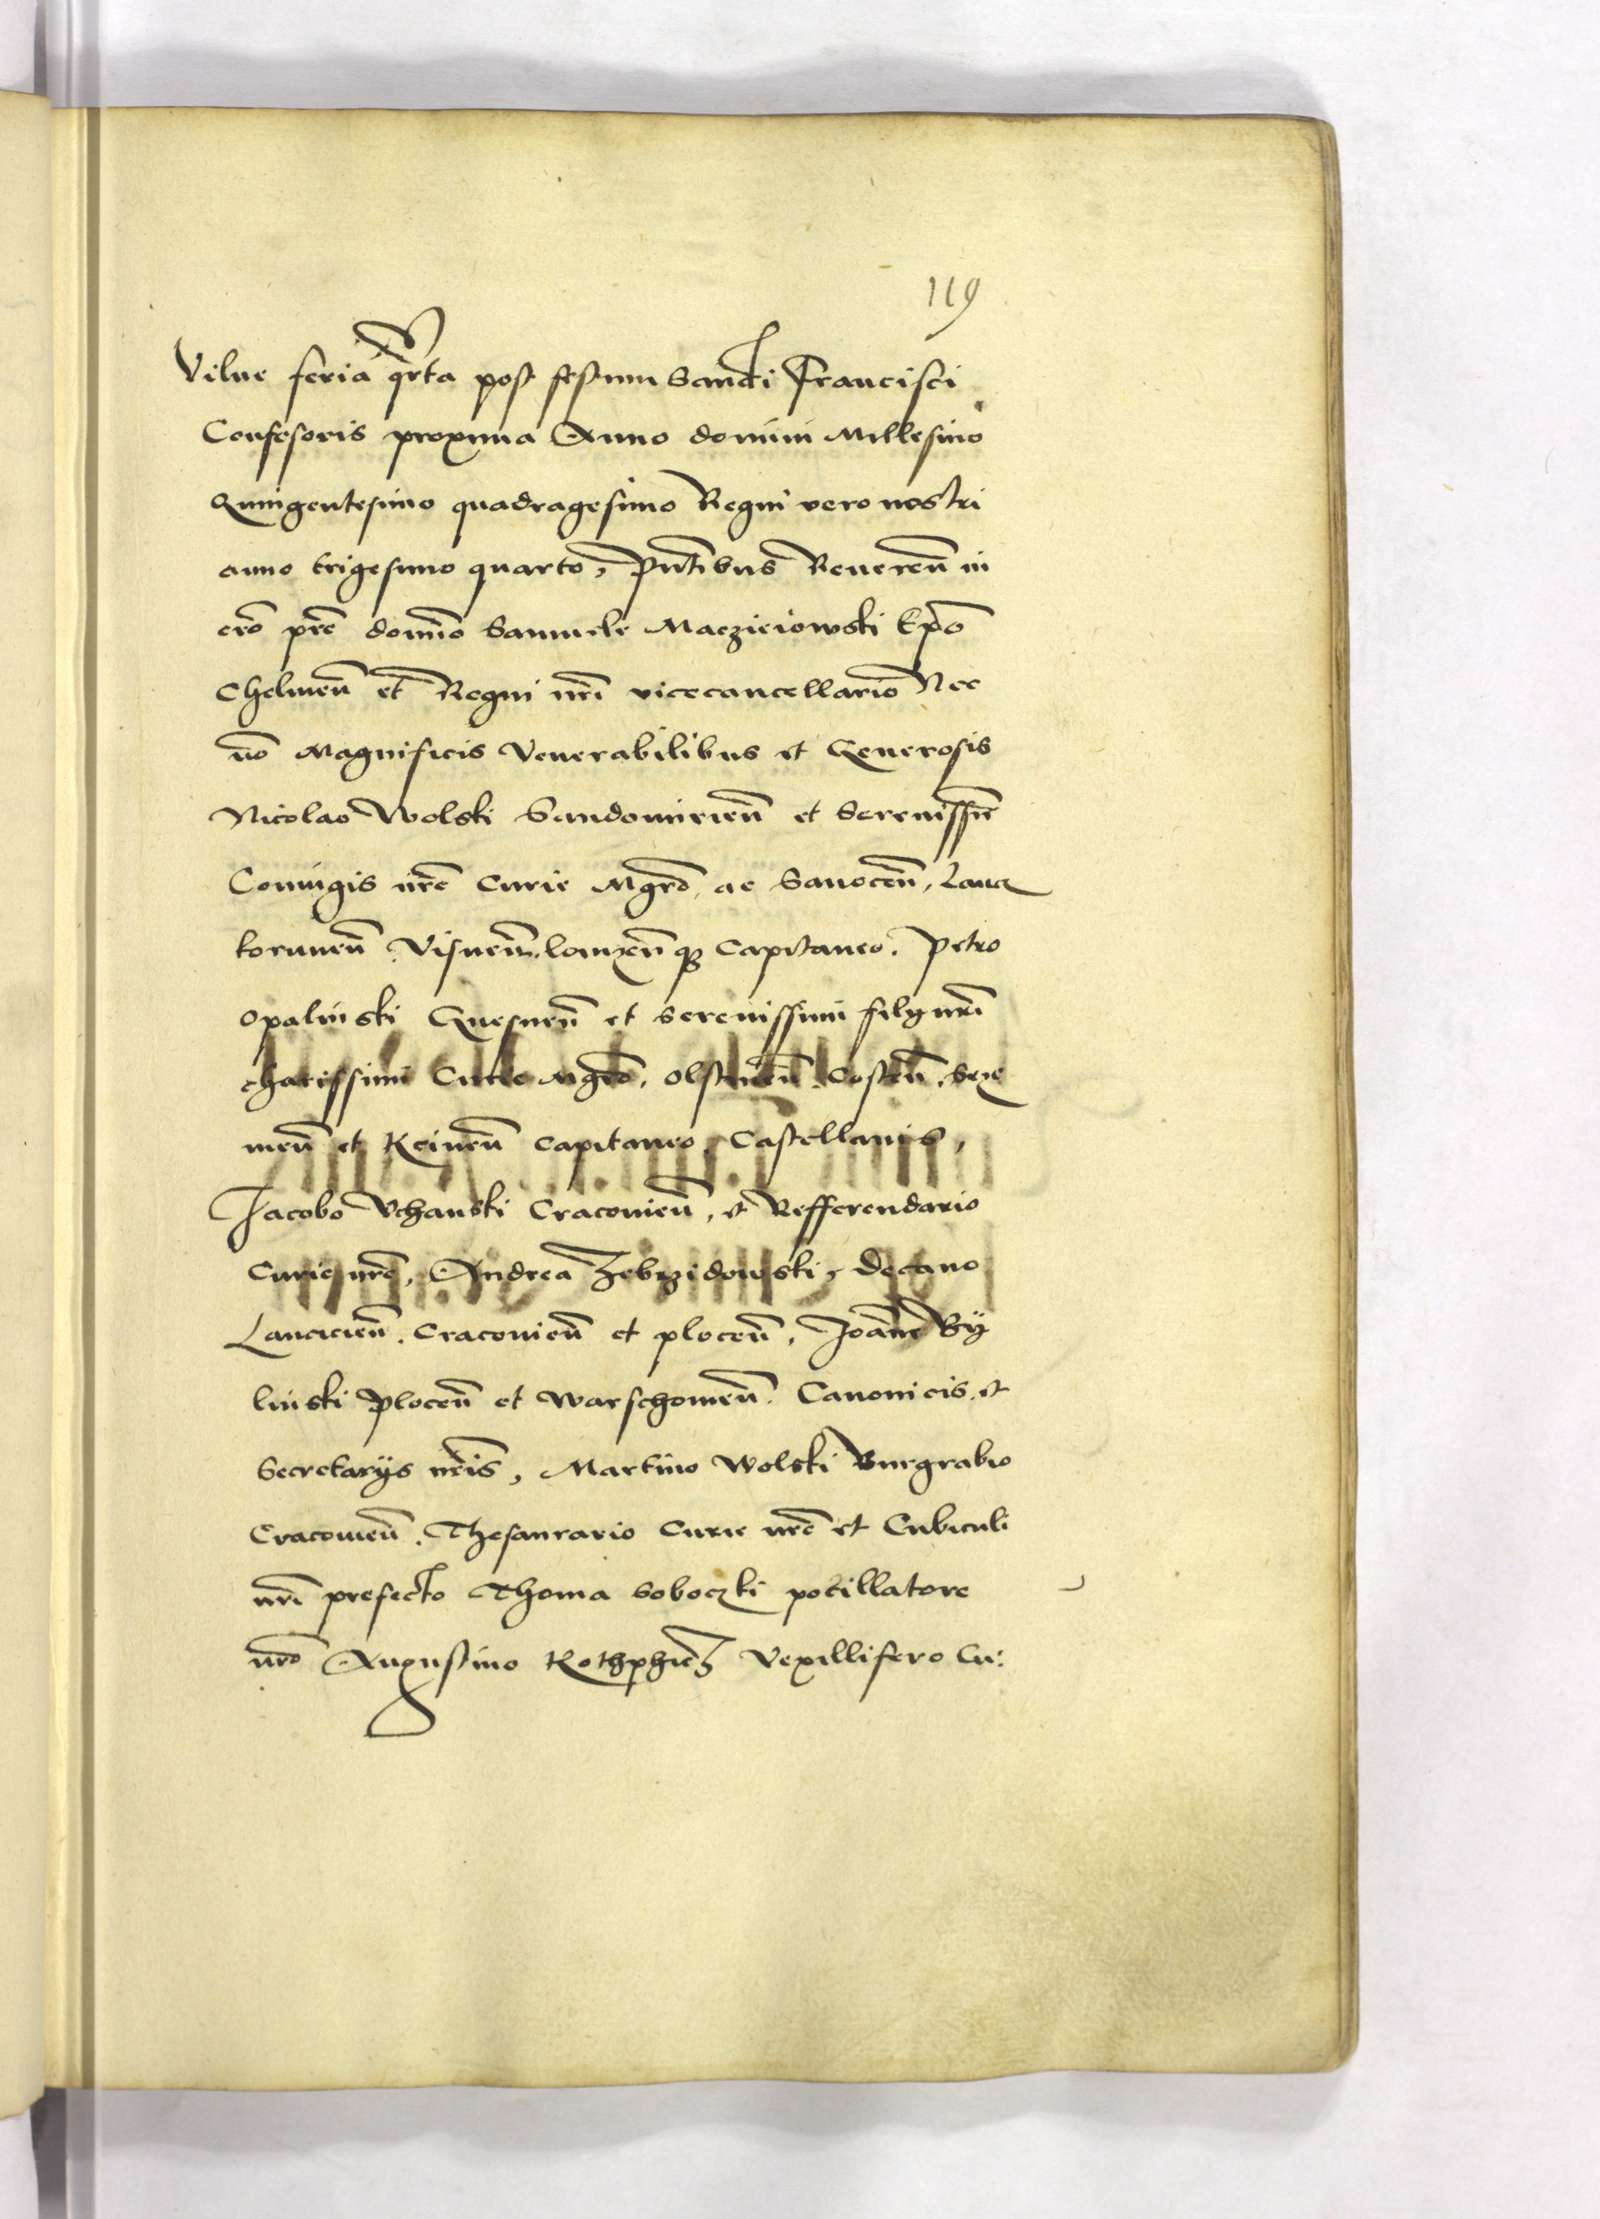 119
Vilne feria qrta post festum Sancti Francisci
Confesoris proxima Anno domini Millesimo
Quingentesimo quadragesimo Regni vero nostri
anno trigesimo quarto, Pntibus Reueren in
cro pre domino Samuele Maczieiowski Epo
Chelmen et Regni nri vicecancellario Nec
no Magnificis Venerabilibus et Generosis
Nicolao Wolski Sandomirien et Serenissime
Coniugis nre Curie Mgro, ac Sanocen, Lanc
korunen Visnen, lomzen q Capitaneo. Petro
Opalinski Gnesnen et Serenissimi filij nri
charissimi Curie Mgro, Olstinen Costen, Srze
men et Kcinen Capitaneo, Castellanis,
Jacobo Vchanski Cracouien, et Refferendario
Curie nre, Andrea Zebrzidowski, Decano
Lancicien. Cracouien et plocen, Joanne By
linski Plocen et Warschouien. Canonicis, et
Secretarijs nris, Martino Wolski Burgrabio
Cracouien. Thesaurario Curie nre et Cubiculi
nri prefecto Thoma Soboczki pocillatore
nro Augustino Kothphicz Vexillifero Cu: